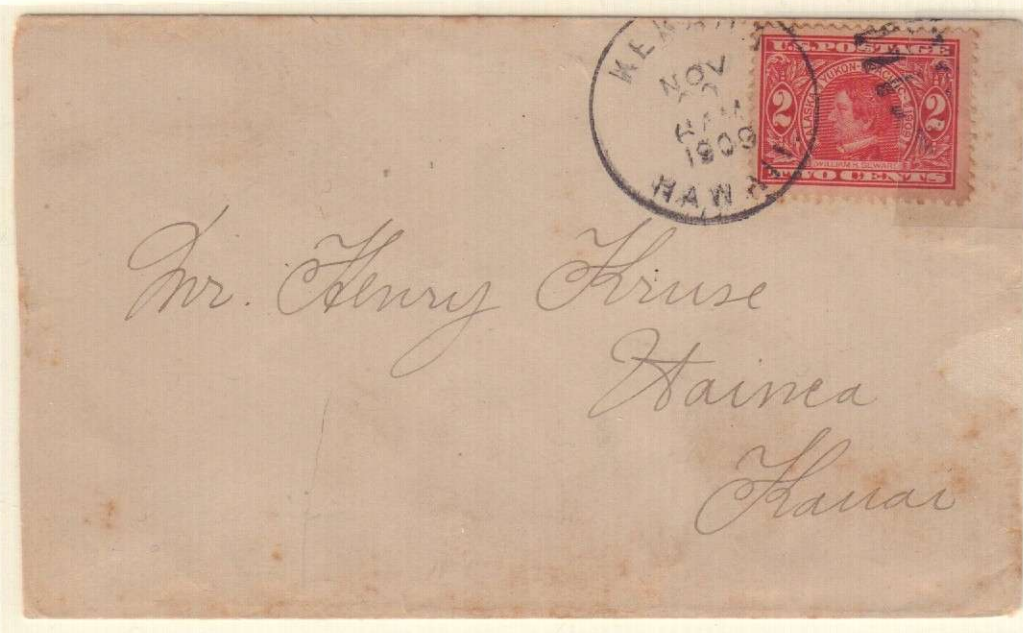 NOV
1909
HAWAII.
U.S. POSTAGE
ALASKA YUKON PACIFIC 1909
2 2
WILLIAM H. SEWARD
TWO CENTS
Mr. Henry Kruse
Waimea
Kauai